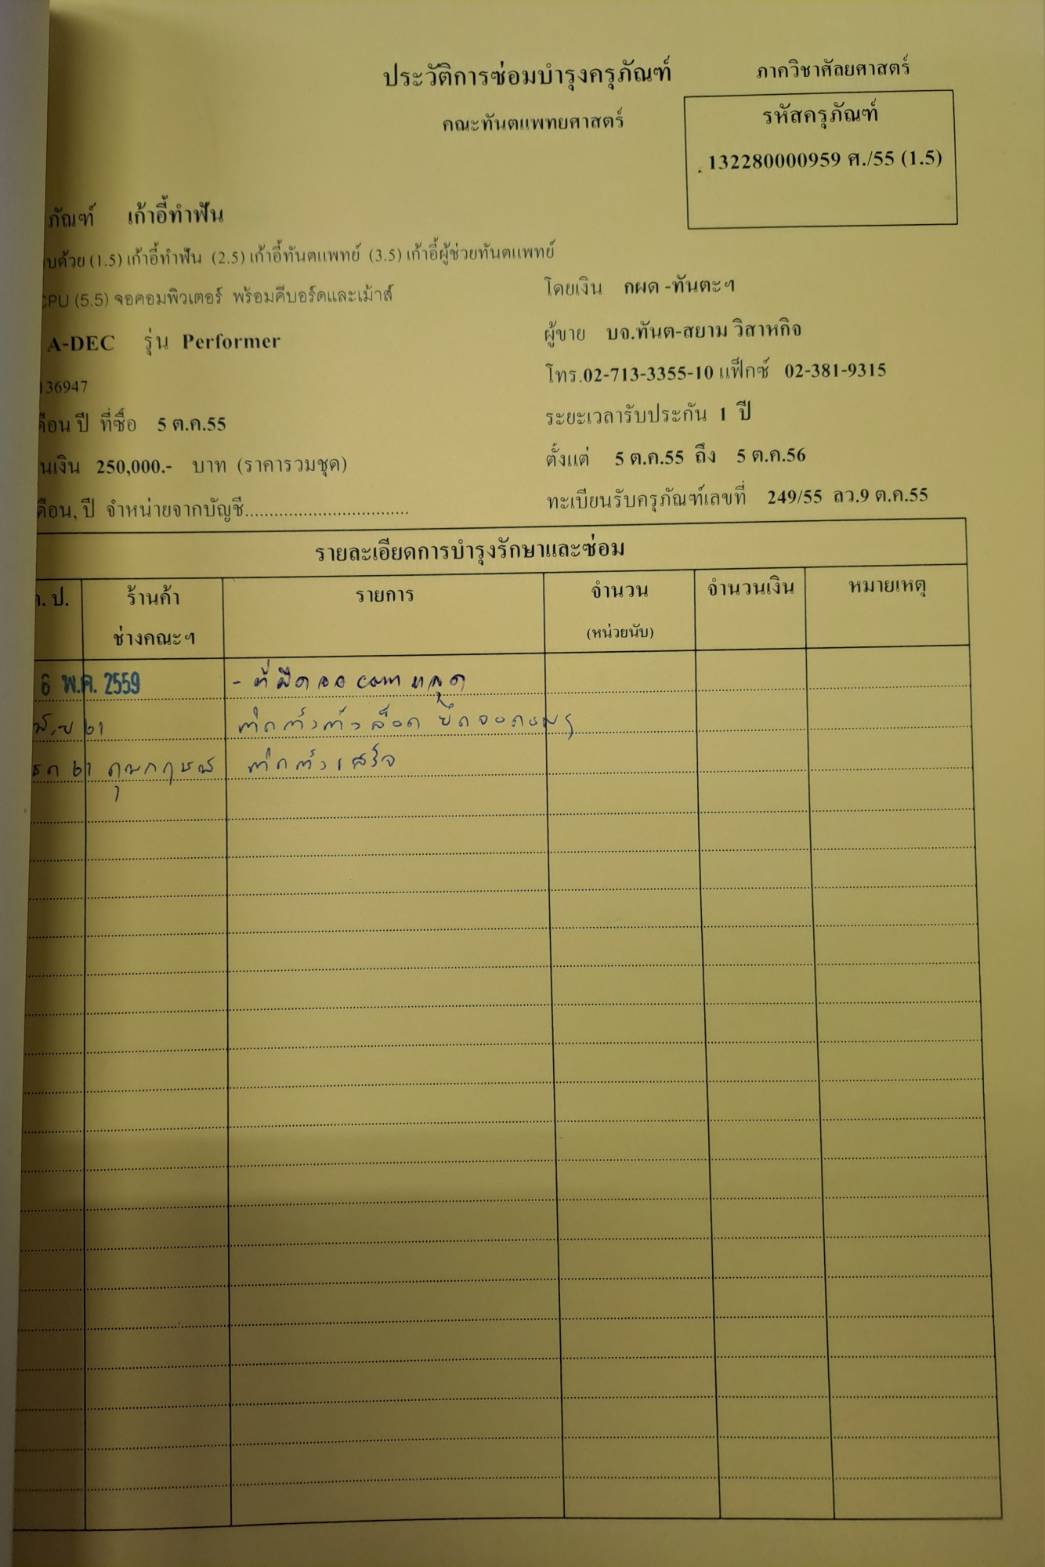 ประวัติการซ่อมบำรุงครุภัณฑ์
ภาควิชาศัลยศาสตร์
คณะทันตแพทยศาสตร์
รหัสครุภัณฑ์
132280000959 ศ./55 (1.5)
ภัณฑ์ เก้าอี้ทำฟัน
บด้วย (1.5) เก้าอี้ทำฟัน (2.5) เก้าอี้ทันตแพทย์ (3.5) เก้าอี้ผู้ช่วยทันตแพทย์
CPU (5.5) จอคอมพิวเตอร์ พร้อมคีบอร์ดและเม้าส์
โดยเงิน กผด -ทันตะฯ
A-DEC รุ่น Performer
ผู้ขาย บจ.ทันต-สยาม วิสาหกิจ
136947
โทร.02-713-3355-10 แฟ็กซ์ 02-381-9315
ดือน ปี ที่ซื้อ 5 ต.ค.55
ระยะเวลารับประกัน 1 ปี
นเงิน 250,000.- บาท (ราคารวมชุด)
ตั้งแต่ 5 ต.ค.55 ถึง 5 ต.ค.56
ดือน, ปี จำหน่ายจากบัญชี.................................
ทะเบียนรับครุภัณฑ์เลขที่ 249/55 ลว.9 ต.ค.55
รายละเอียดการบำรุงรักษาและซ่อม
ด. ป. ร้านค้า รายการ จำนวน จำนวนเงิน หมายเหตุ
ช่างคณะฯ (หน่วยนับ)
6 พ.ค. 2559 - ที่ยึดจอ com หลุด
ติดตั้งตัวล็อค ยึดจอคอมฯ
ติดตั้งเสร็จ